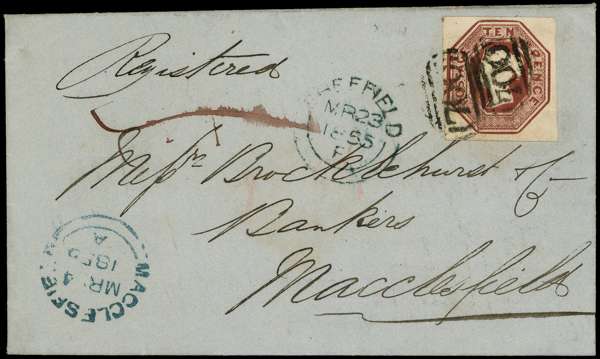 Registered
TEN PENCE
700
SHEFFIELD
MR 23
1855
Messrs Brocklehurst & Co
Bankers
Macclesfield
MACCLESFIE
MR 4
185
A